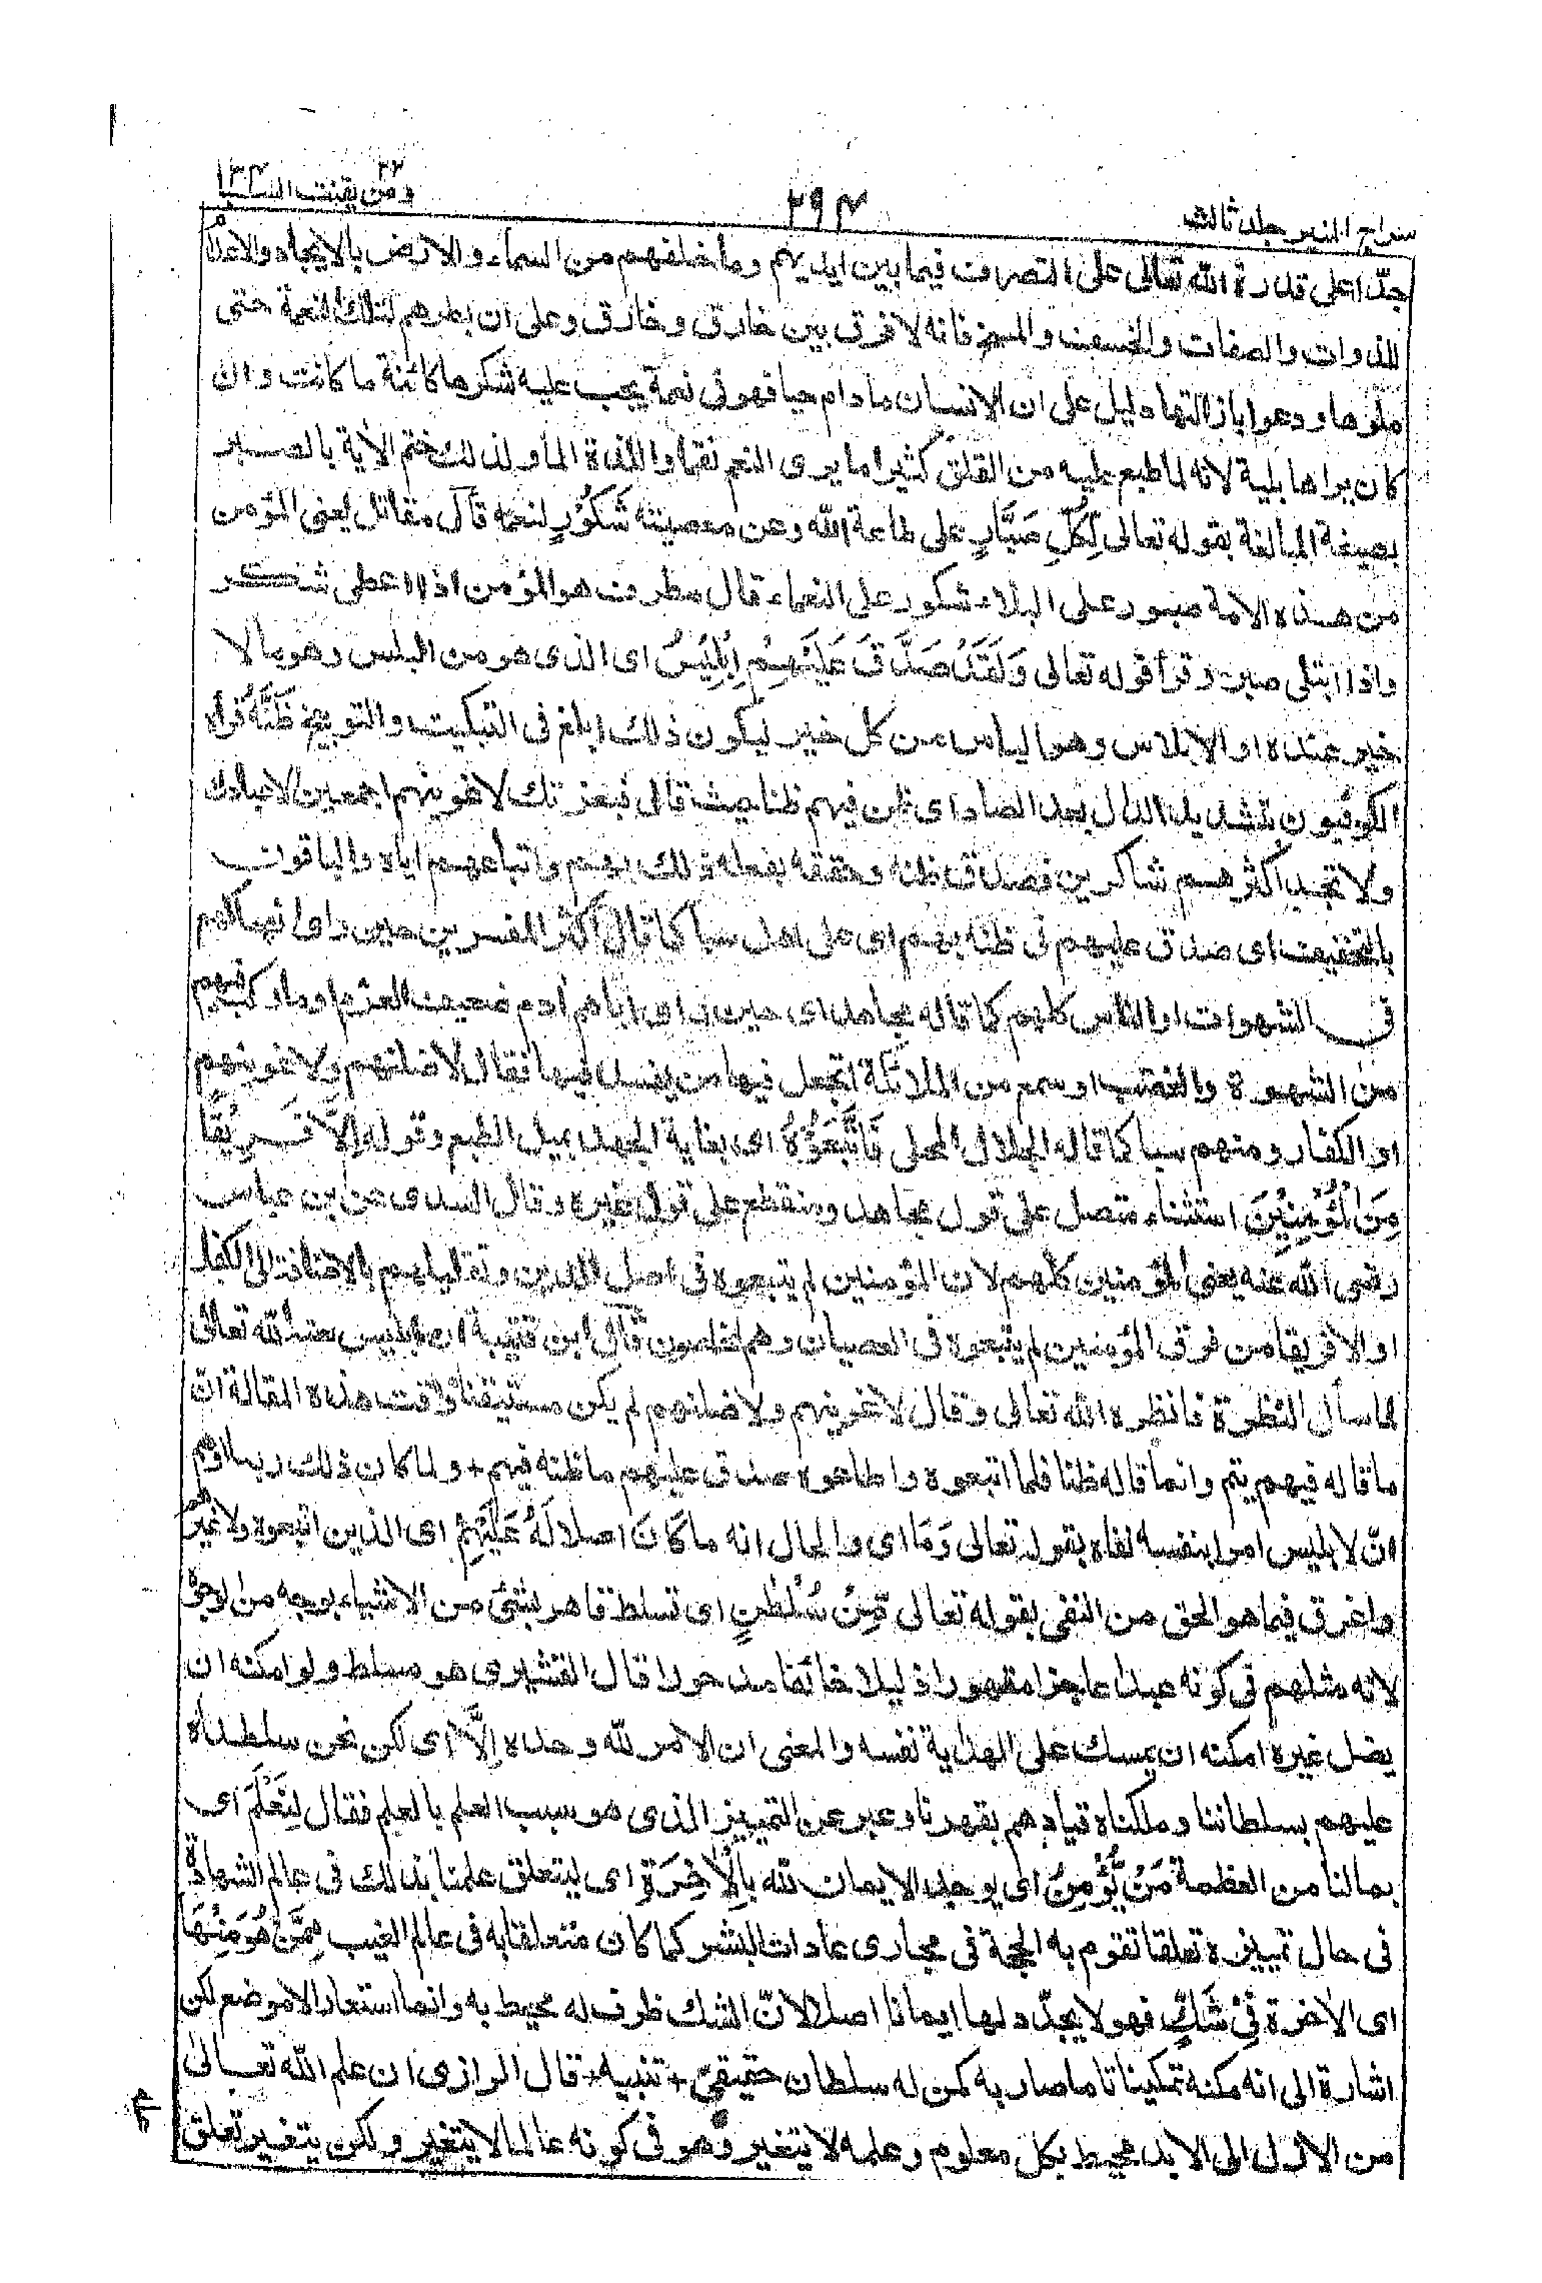 سراج المنير جلد ثالث
٢٩٤
ومن يقنت ٢٢
جدا على قدرة الله تعالى على التصرف فيما بين ايديهم وما خلفهم من السماء والارض بالايجاد والاعدام
للذوات والصفات والخسف والمسخ فانه لا فرق بين خارق وخارق وعلى ان بطرهم لتلك النعمة حتى
ملوها ودعوا بازالتها دليل على ان الانسان مادام حيا فهو فى نعمة يجب عليه شكرها كائنة ما كانت وان
كان يراها بلية لانه لما طبع عليه من القلق كثيرا ما يرى النعم نقما واللذة الما ولذلك ختم الأية بالصبر
بصيغة المبالغة بقوله تعالى لِكُلِّ صَبَّارٍ على طاعة الله وعن معصيته شَكُوْرٍ لنعمه قال مقاتل يعنى المؤمن
من هذه الامة صبور على البلاء شكور على النعماء قال مطرف هو المؤمن اذا اعطى شكر
واذا ابتلى صبر وقرأ قوله تعالى وَلَقَدْ صَدَّقَ عَلَيْهِمْ اِبْلِيْسُ اى الذى هو من البلس وهو ما لا
خير عنده او الابلاس وهو الياس من كل خير ليكون ذلك ابلغ فى التبكيت والتوبيخ ظَنَّهُ قرأه
الكوفيون بتشديد الدال بعد الصاد اى ظن فيهم ظنا حيث قال فبعزتك لاغوينهم اجمعين الا عبادك
ولا تجد اكثرهم شاكرين فصدق ظنه وحققه بفعله ذلك بهم واتباعهم اياه والباقون
بالتخفيف اى صدق عليهم فى ظنه بهم اى على اهل سبا كما قال اكثر المفسرين حين راى انهماكهم
فى الشهوات او الناس كلهم كما قاله مجاهد اى حين راى اباهم أدم ضعيف العزم او ما ركب فيهم
من الشهوة والغضب او سمع من الملائكة اتجعل فيها من يفسد فيها فقال لاضلنهم ولاغوينهم
او الكفار ومنهم سبا كما قاله الجلال المحلى فَاتَّبَعُوْهُ اى بغاية الجهد بميل الطبع وقوله اِلَّا فَرِيْقًا
مِنَ الْمُؤْمِنِيْنَ استثناء متصل على قول مجاهد ومنقطع على قول غيره وقال السدى عن بن عباس
رضى الله عنه يعنى المؤمنين كلهم لان المؤمنين لم يتبعوه فى اصل الدين وتقليلهم بالاضافة الى الكفار
او الا فريقا من فرق المؤمنين لم يتبعوه فى العصيان وهم المخلصون قال ابن قتيبة ان ابليس لعنه الله تعالى
لما سأل النظرة فانظره الله تعالى وقال لاغوينهم ولاضلنهم لم يكن مستيقنا وقت هذه المقالة ان
ما قاله فيهم يتم وانما قاله ظنا فلما اتبعوه واطاعوه صدق عليهم ما ظنه فيهم + ولما كان ذلك ربما اوهم
انّ لابليس امرا بنفسه نفاه بقوله تعالى وَمَا اى والحال انه ما كَانَ اصلا لَهُ عَلَيْهِمْ اى الذين اتبعوه ولا غيرهم
واغرق فيما هو الحق من النفى بقوله تعالى مِّنْ سُلْطٰنٍ اى تسلط قاهر بشئ من الاشياء بوجه من الوجوه
لانه مثلهم فى كونه عبدا عاجزا مقهورا ذليلا خائفا مدحورا قال القشيرى هو مسلط ولو امكنه ان
يضل غيره امكنه ان يمسك على الهداية نفسه والمعنى ان الامر لله وحده اِلَّا اى لكن نحن سلطناه
عليهم بسلطاننا وملكناه قيادهم بقهرنا وعبر عن التمييز الذى هو سبب العلم بالعلم فقال لِنَعْلَمَ اى
بما لنا من العظمة مَنْ يُّؤْمِنُ اى يوجد الايمان لله بِالْاٰخِرَةِ اى ليتعلق علمنا بذلك فى عالم الشهادة
فى حال تمييزه تعلقا تقوم به الحجة فى مجارى عادات البشر كما كان متعلقا به فى عالم الغيب مِمَّنْ هُوَ مِنْهَا
اى الأخرة فِيْ شَكٍّ فهو لا يجدّد لها ايمانا اصلا لانّ الشك ظرف له محيط به وانما استعار الا موضع لكن
اشارة الى انه مكنه تمكينا تاما صار به كمن له سلطان حقيقىّ + تنبيه + قال الرازى ان علم الله تعالى
من الازل الى الابد محيط بكل معلوم وعلمه لا يتغير وهو فى كونه عالما لا يتغير ولكن يتغير تعلق